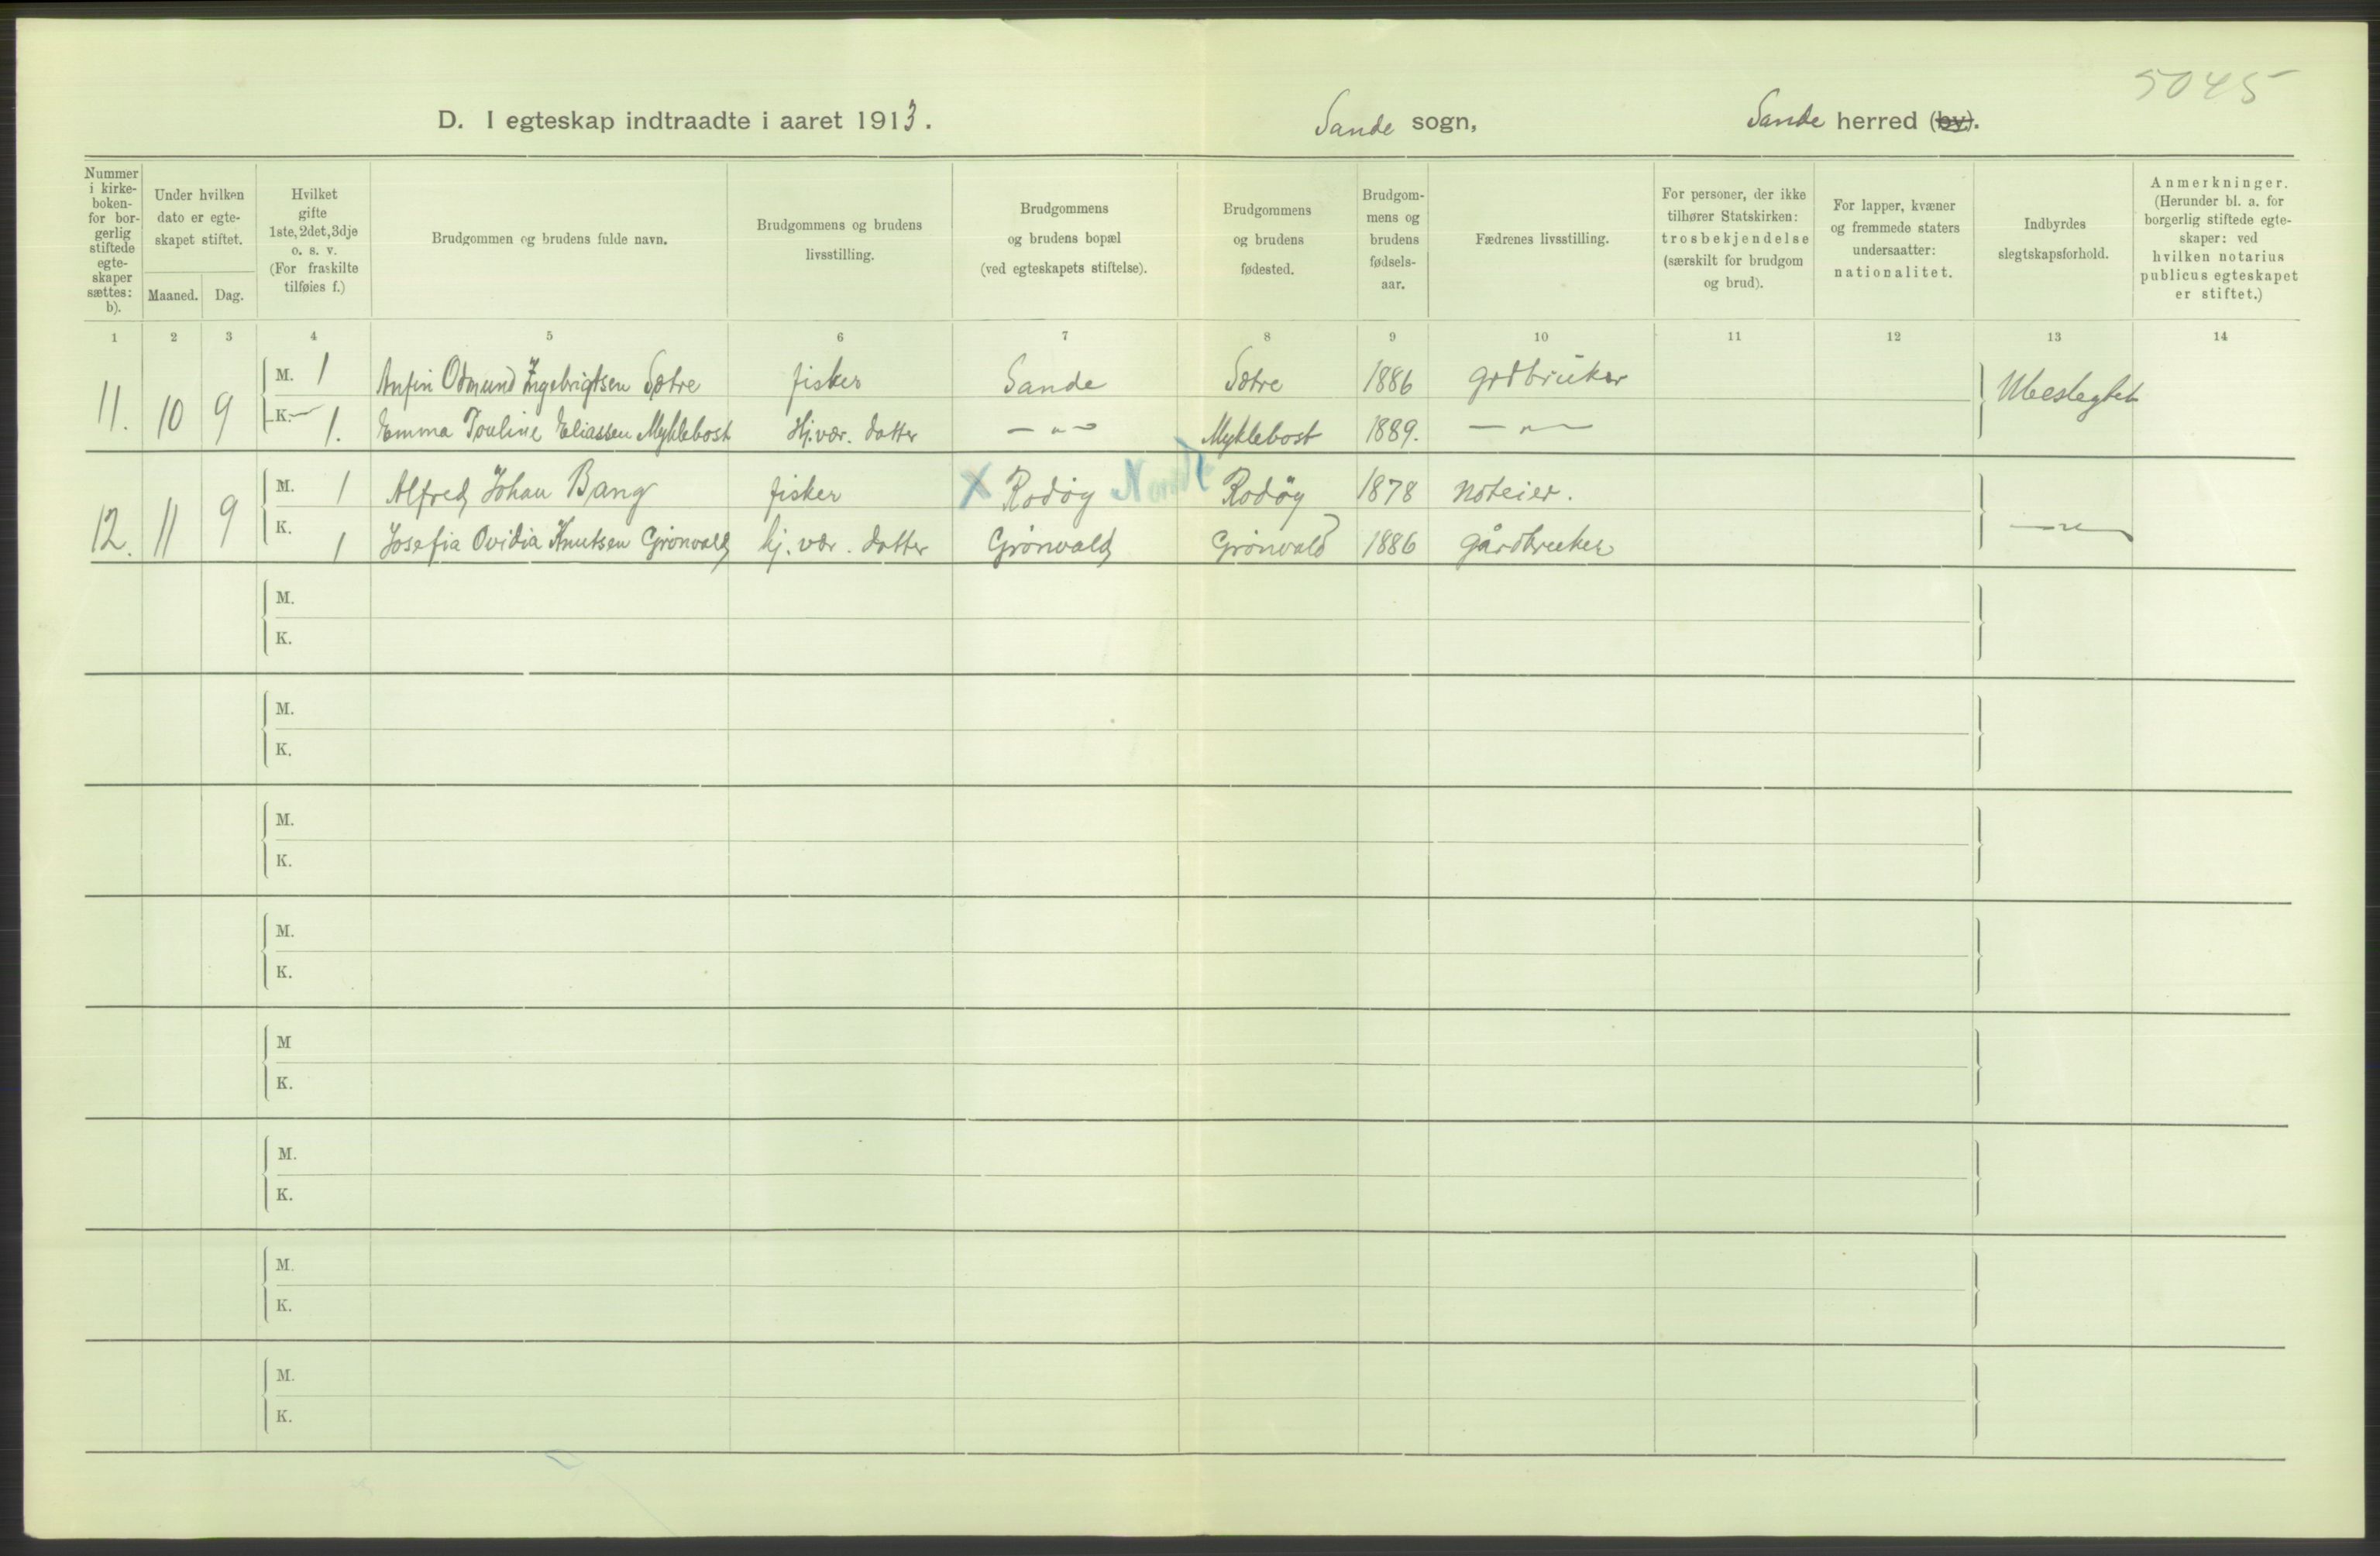 5045
D. I egteskap indtraadte i aaret 1913. Sande sogn, Sande herred (by).
Nummer i kirkeboken- for borgerlig stiftede egteskaper sættes: b).
Under hvilken dato er egteskapet stiftet.
Maaned. Dag.
Hvilket gifte 1ste, 2det, 3dje o. s. v. (For fraskilte tilføies f.)
Brudgommen og brudens fulde navn.
Brudgommens og brudens livsstilling.
Brudgommens og brudens bopæl (ved egteskapets stiftelse).
Brudgommens og brudens fødested.
Brudgommens og brudens fødselsaar.
Fædrenes livsstilling.
For personer, der ikke tilhører Statskirken: trosbekjendelse (særskilt for brudgom og brud).
For lapper, kvæner og fremmede staters undersaatter: nationalitet.
Indbyrdes slegtskapsforhold.
Anmerkninger. (Herunder bl. a. for borgerlig stiftede egteskaper: ved hvilken notarius publicus egteskapet er stiftet.)
1 2 3 4 5 6 7 8 9 10 11 12 13 14
11. 10 9 M. 1 Anfin Odmund Ingebrigtsen Sætre fisker Sande Sætre 1886 grdbruker Ubeslegtet
K. 1. Emma Pouline Eliassen Myklebost Hj. vær. datter — " — Myklebost 1889. — " —
12. 11 9 M. 1 Alfred Johan Bang fisker X Rodøy Nordl Rodöy 1878 noteier. — " —
K. 1 Josefia Ovidia Knutsen Grönvald hj. vær. datter Grönvald Grönvald 1886 gårdbruker
M.
K.
M.
K.
M.
K.
M.
K.
M
K.
M.
K.
M.
K.
M.
K.